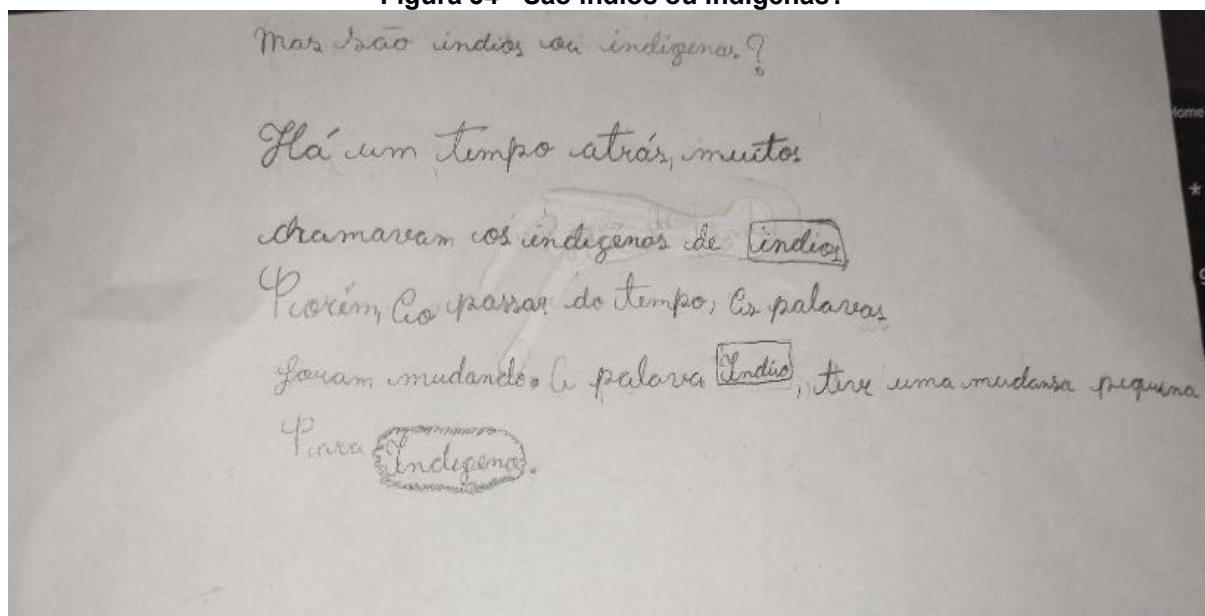 Figura 34 - São índios ou indígenas?
Mas são índios ou indígenas?
Há um tempo atrás, muitos
chamavam os indígenas de índios
Porém, Co passar do tempo, As palavas
foram mudando. A palava Índio, tive uma mudansa pequena
Para Indígena.
Home
*